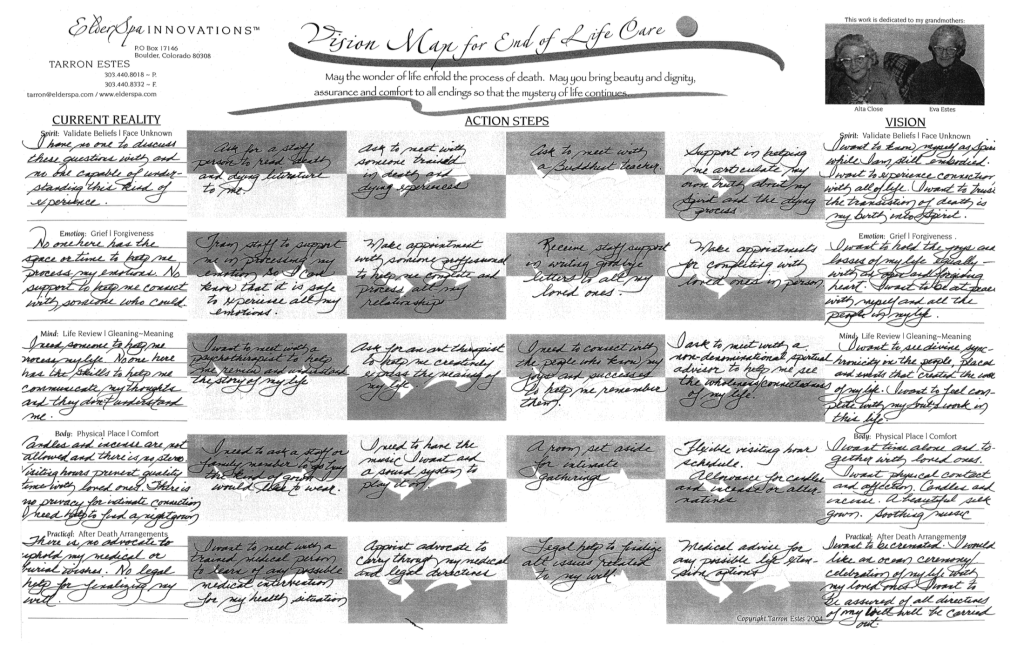 ElderSpa INNOVATIONS™
P.O Box 17146
Boulder, Colorado 80308
TARRON ESTES
303.440.8018 – P.
303.440.8332 – F.
tarron@elderspa.com / www.elderspa.com
Vision Map for End of Life Care
May the wonder of life enfold the process of death. May you bring beauty and dignity,
assurance and comfort to all endings so that the mystery of life continues.
This work is dedicated to my grandmothers:
Alta Close
Eva Estes
CURRENT REALITY
ACTION STEPS
VISION
Spirit: Validate Beliefs | Face Unknown
I have no one to discuss
these questions with and
no one capable of under-
standing this kind of
experience.
Ask for a staff
person to read death
and dying literature
to me.
Ask to meet with
someone trained
in death and
dying experiences
Ask to meet with
a Buddhist teacher.
Support in helping
me articulate my
own truth about my
Spirit and the dying
process
Spirit: Validate Beliefs | Face Unknown
I want to know myself as Spirit
while I am still embodied.
I want to experience connection
with all of life. I want to trust
the transition of death is
my birth into Spirit.
Emotion: Grief | Forgiveness
No one here has the
space or time to help me
process my emotions. No
support to help me connect
with someone who could.
Train staff to support
me in processing my
emotion so I can
know that it is safe
to experience all my
emotions.
Make appointment
with someone professional
to help me complete and
process all my
relationships
Receive staff support
in writing goodbye
letters to all my
loved ones.
Make appointments
for completing with
loved ones in person.
Emotion: Grief | Forgiveness
I want to hold the joys and
losses of my life equally –
with an open and forgiving
heart. I want to be at peace
with myself and all the
people in my life.
Mind: Life Review | Gleaning~Meaning
I need someone to help me
process my life. No one here
has the skills to help me
communicate my thoughts
and they don't understand
me.
I want to meet with a
psychotherapist to help
me review and understand
the story of my life
Ask for an art therapist
to help me creatively
express the meaning of
my life.
I need to connect with
the people who know my
and successes
to help me remember
them.
I ask to meet with a
non-denominational spiritual
advisor to help me see
the wholeness/connectedness
of my life.
Mind: Life Review | Gleaning~Meaning
I want to see divine sync-
hronicity in the people, places
and events that created the
of my life. I want to feel com-
plete with my soul's work in
this life.
Body: Physical Place | Comfort
Candles and incense are not
allowed and there is no stereo.
Visiting hours prevent quality
time with loved ones. There is
no privacy for intimate connection
I need help to find a nightgown
I need to ask a staff or
family member to get my
the kind of gown I
would like to wear.
I need to have the
music I want and
a sound system to
play it on.
A room set aside
for intimate
gatherings
Flexible visiting hour
schedule.
Allowance for candles
and incense or alter-
natives
Body: Physical Place | Comfort
I want time alone and to-
gether with loved ones.
I want physical contact
and affection. Candles and
incense. A beautiful silk
gown. Soothing music
Practical: After Death Arrangements
There is no advocate to
uphold my medical or
burial wishes. No legal
help for finalizing my
will.
I want to meet with a
trained medical person
to learn of any possible
medical intervention
for my health situation
Appoint advocate to
carry through my medical
and legal directives
Legal help to finalize
all issues related
to my will.
Medical advice for
any possible life exten-
sion options
Practical: After Death Arrangements
I want to be cremated. I would
like an ocean ceremony
celebration of my life with
my loved ones. I want to
be assured of all directives
of my will will be carried
out.
Copyright Tarron Estes 2004